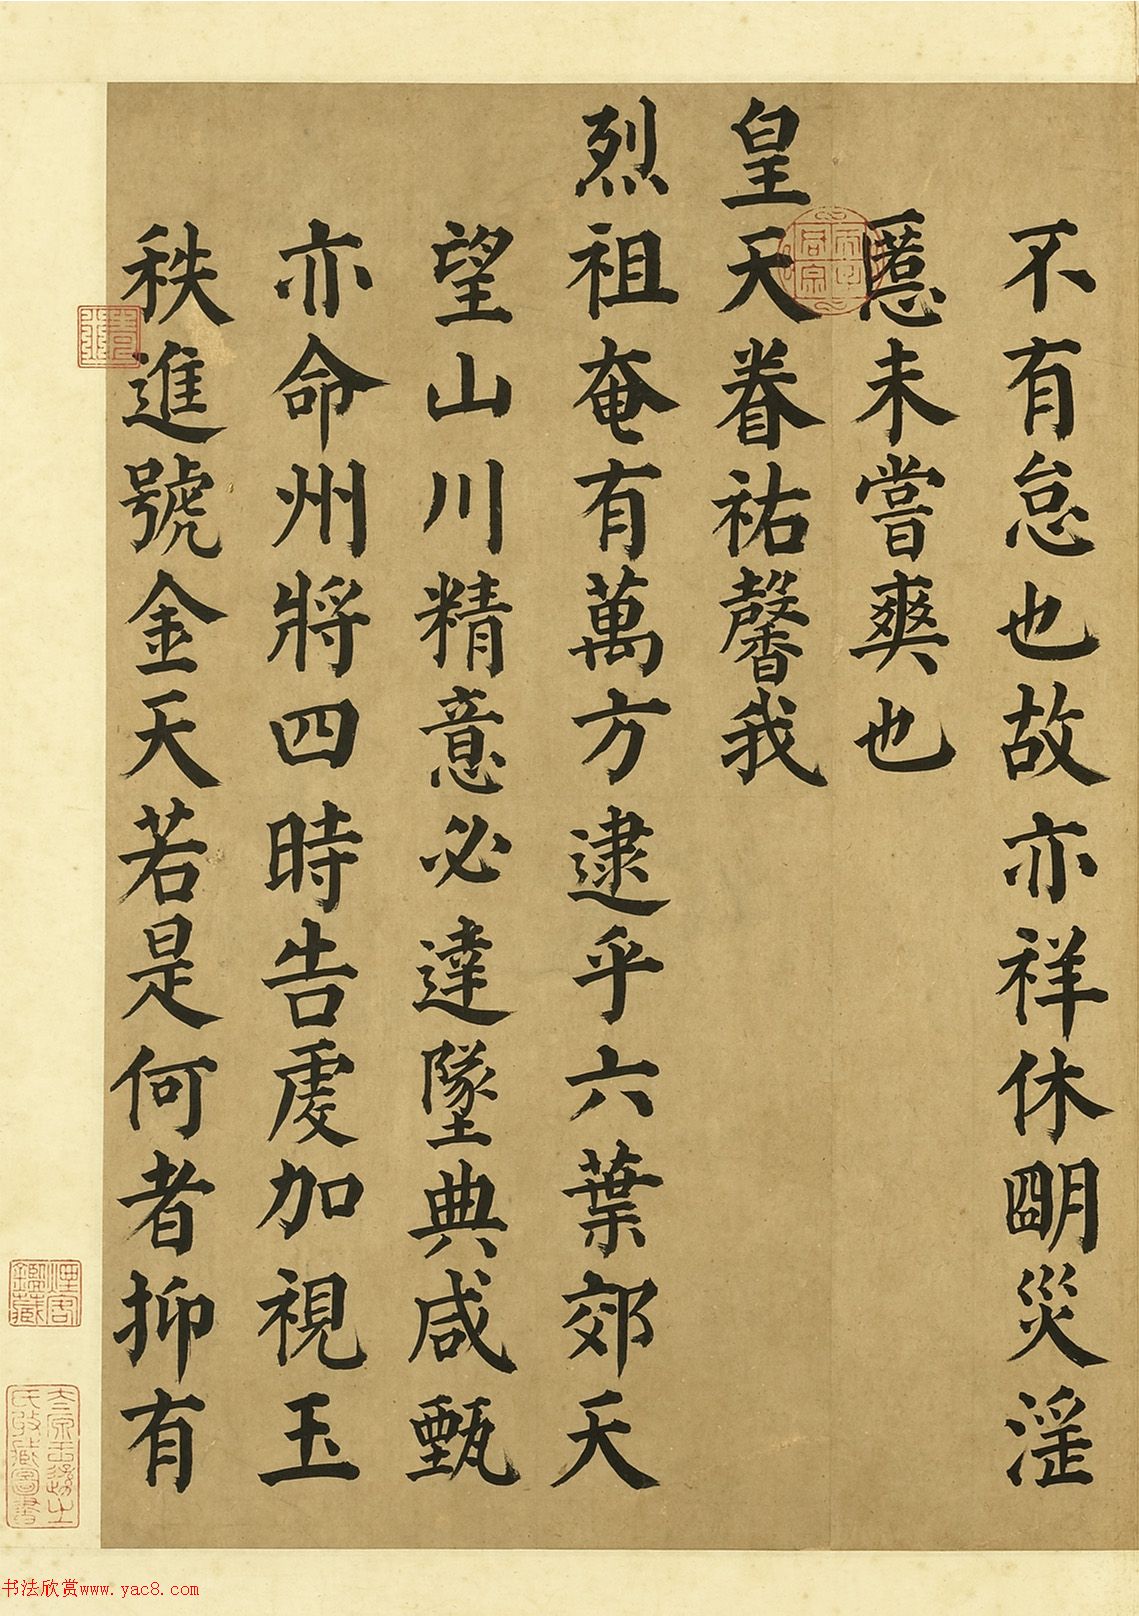 不有怠也故亦祥休明災淫
慝未嘗爽也
皇天眷祐馨我
烈祖奄有萬方逮乎六葉郊天
望山川精意必達墜典咸甄
亦命州將四時告虔加視王
秩進號金天若是何者抑有
書法欣赏www.yac8.com